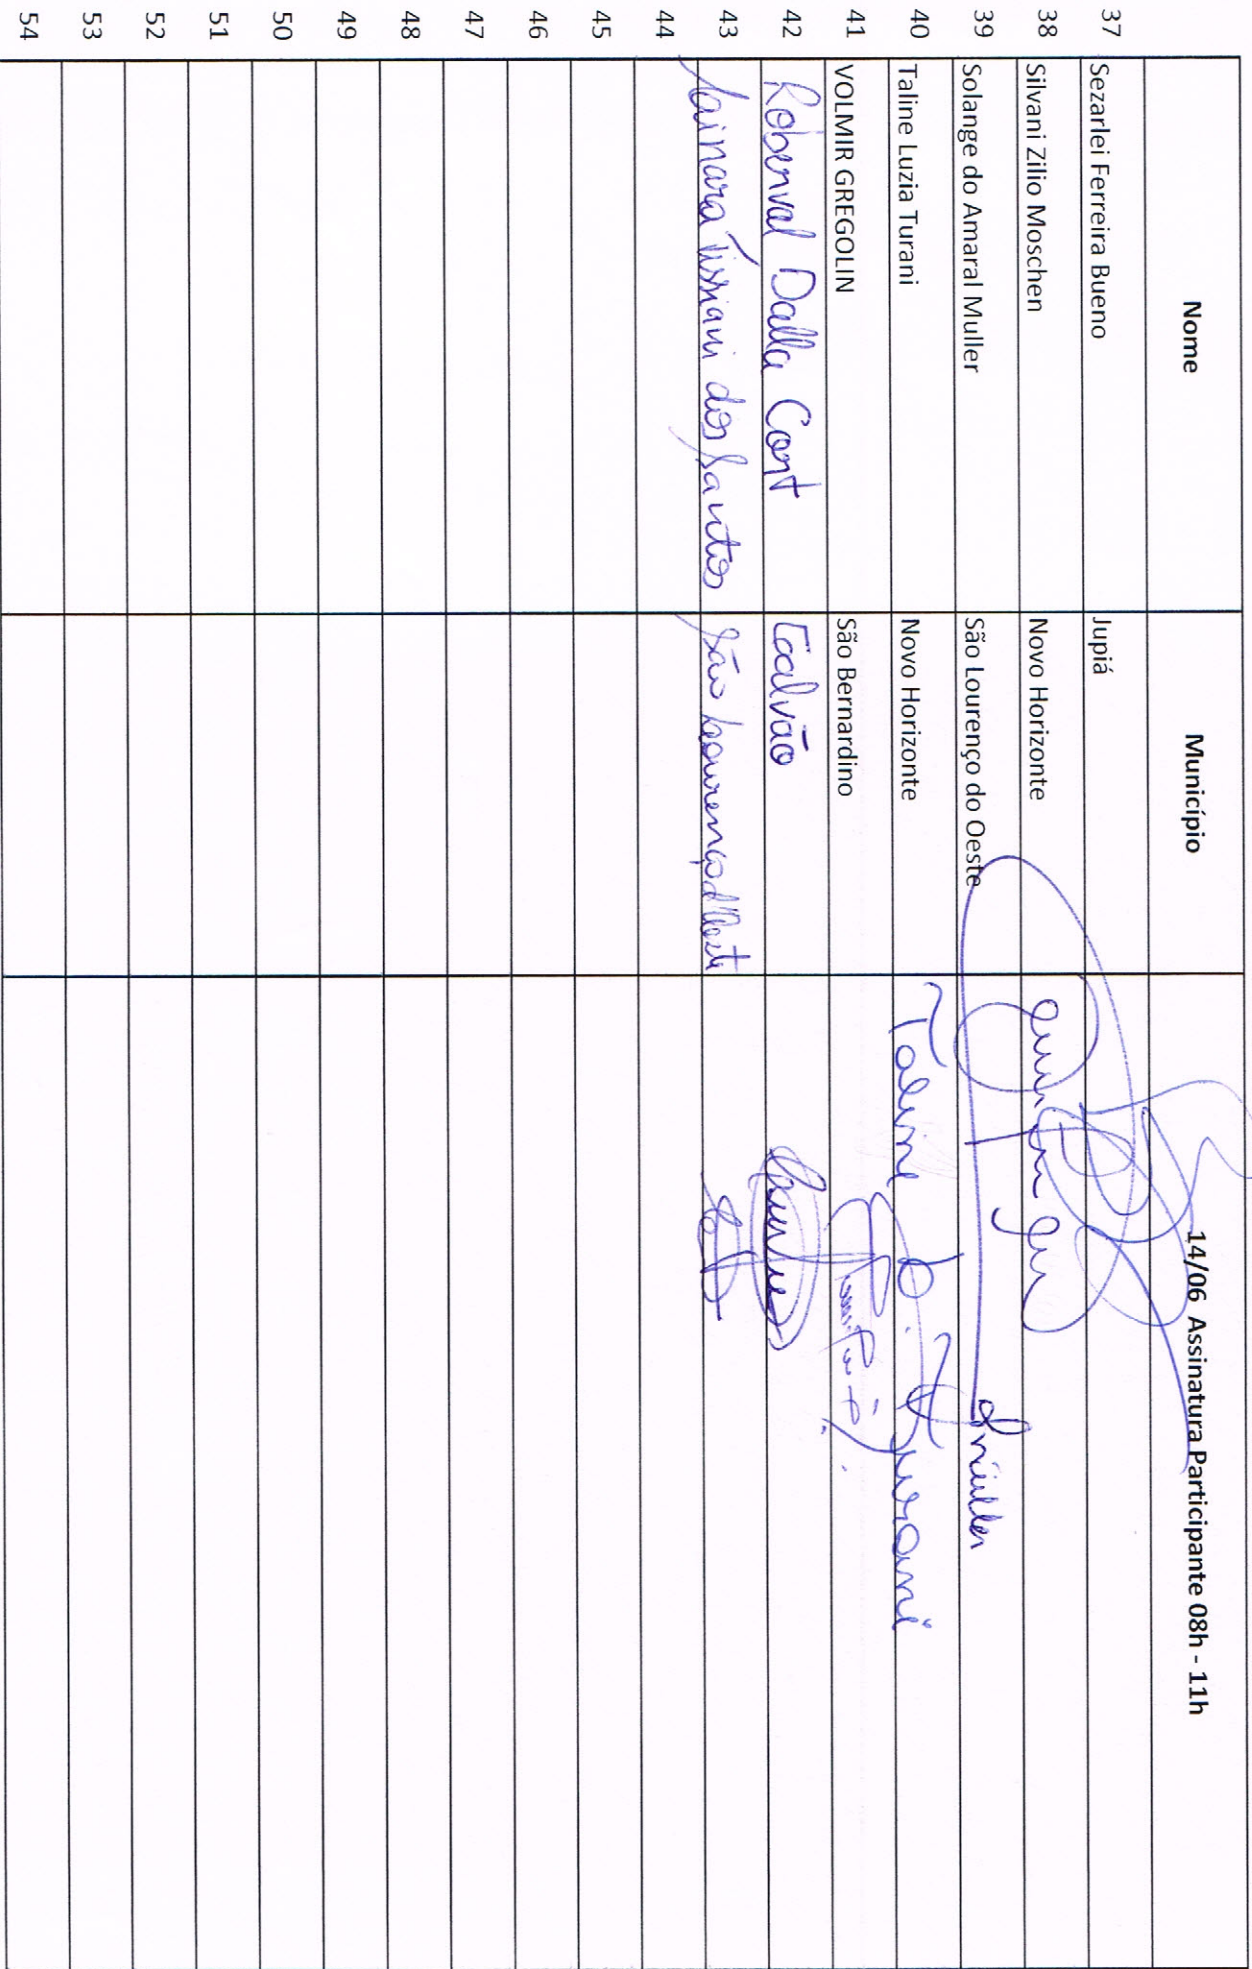 Nome Município 14/06 Assinatura Participante 08h - 11h
37 Sezarlei Ferreira Bueno Jupiá
38 Silvani Zilio Moschen Novo Horizonte
39 Solange do Amaral Muller São Lourenço do Oeste Smüller
40 Taline Luzia Turani Novo Horizonte Taline L. Turani
41 VOLMIR GREGOLIN São Bernardino
42 Robenval Dalla Cort Galvão
43 Tissiani dos Santos São Lourenço d'Oeste
44
45
46
47
48
49
50
51
52
53
54